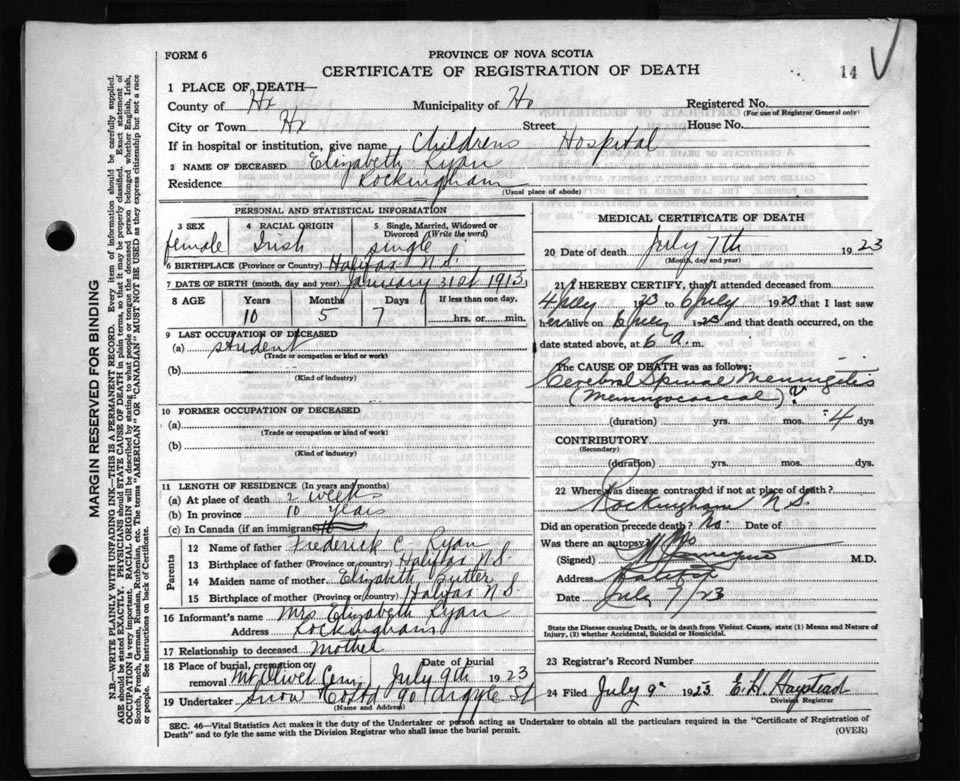 FORM 6
PROVINCE OF NOVA SCOTIA
CERTIFICATE OF REGISTRATION OF DEATH
14
1 PLACE OF DEATH—
County of Hx Municipality of Hx Registered No.
(For use of Registrar General only)
City or Town Hx Street House No.
If in hospital or institution, give name, Childrens Hospital
2 NAME OF DECEASED Elizabeth Ryan
Residence Rockingham
(Usual place of abode)
PERSONAL AND STATISTICAL INFORMATION
3 SEX female
4 RACIAL ORIGIN Irish
5 Single, Married, Widowed or Divorced (Write the word) single
6 BIRTHPLACE (Province or Country) Halifax N.S.
7 DATE OF BIRTH (month, day and year) January 31st 1913
8 AGE Years Months Days If less than one day,
10 5 7 hrs. or min.
9 LAST OCCUPATION OF DECEASED
(a) student
(Trade or occupation or kind or work)
(b)
(Kind of industry)
10 FORMER OCCUPATION OF DECEASED
(a)
(Trade or occupation or kind of work)
(b)
(Kind of industry)
11 LENGTH OF RESIDENCE (In years and months)
(a) At place of death 2 weeks
(b) In province 10 years
(c) In Canada (if an immigrant)
Parents
12 Name of father Frederick C. Ryan
13 Birthplace of father (Province or country) Halifax N.S.
14 Maiden name of mother Elizabeth Butler
15 Birthplace of mother (Province or country) Halifax N.S.
16 Informant's name Mrs Elizabeth Ryan
Address Rockingham
17 Relationship to deceased Mother
18 Place of burial, cremation or removal Mt Olivet Cem. Date of burial July 9th 1923
19 Undertaker Snow & Co Ltd 90 Argyle St
(Name and Address)
MEDICAL CERTIFICATE OF DEATH
20 Date of death July 7th 1923
(Month, day and year)
21 I HEREBY CERTIFY, that I attended deceased from
4 July 1923 to 6 July 1923 that I last saw
her alive on 6 July 1923 and that death occurred, on
date stated above, at 6 a.m.
The CAUSE OF DEATH was as follows:
Cerebral Spinal Meningitis
(Meningococcal) ?
(duration) yrs. mos. 4 dys
CONTRIBUTORY
(Secondary)
(duration) yrs. mos. dys.
22 Where was disease contracted if not at place of death?
Rockingham N.S.
Did an operation precede death? No. Date of
Was there an autopsy? No
(Signed) M.D.
Address Halifax
Date July 7/23
State the Disease causing Death, or in death from Violent Causes, state (1) Means and Nature of
Injury, (2) whether Accidental, Suicidal or Homicidal.
23 Registrar's Record Number
24 Filed July 9 1923 E.H. Haystead
Division Registrar
SEC. 46—Vital Statistics Act makes it the duty of the Undertaker or person acting as Undertaker to obtain all the particulars required in the "Certificate of Registration of
Death" and to fyle the same with the Division Registrar who shall issue the burial permit. (OVER)
MARGIN RESERVED FOR BINDING
N.B.—WRITE PLAINLY WITH UNFADING INK—THIS IS A PERMANENT RECORD. Every item of information should be carefully supplied.
AGE should be stated EXACTLY. PHYSICIANS should STATE CAUSE OF DEATH in plain terms, so that it may be properly classified. Exact statement of
OCCUPATION is very important. RACIAL ORIGIN will be described by stating to what people or tongue the deceased person belonged whether English, Irish,
Scotch, French, German, Russian, Ruthenian, etc. The terms "AMERICAN" OR "CANADIAN" MUST NOT BE USED as they express citizenship but not a race
or people. See instructions on back of Certificate.